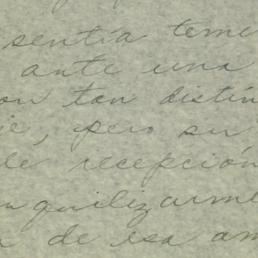 sentía teme
ante una
on tan distin
e, pero su
de recepción
quilizarme
de esa am